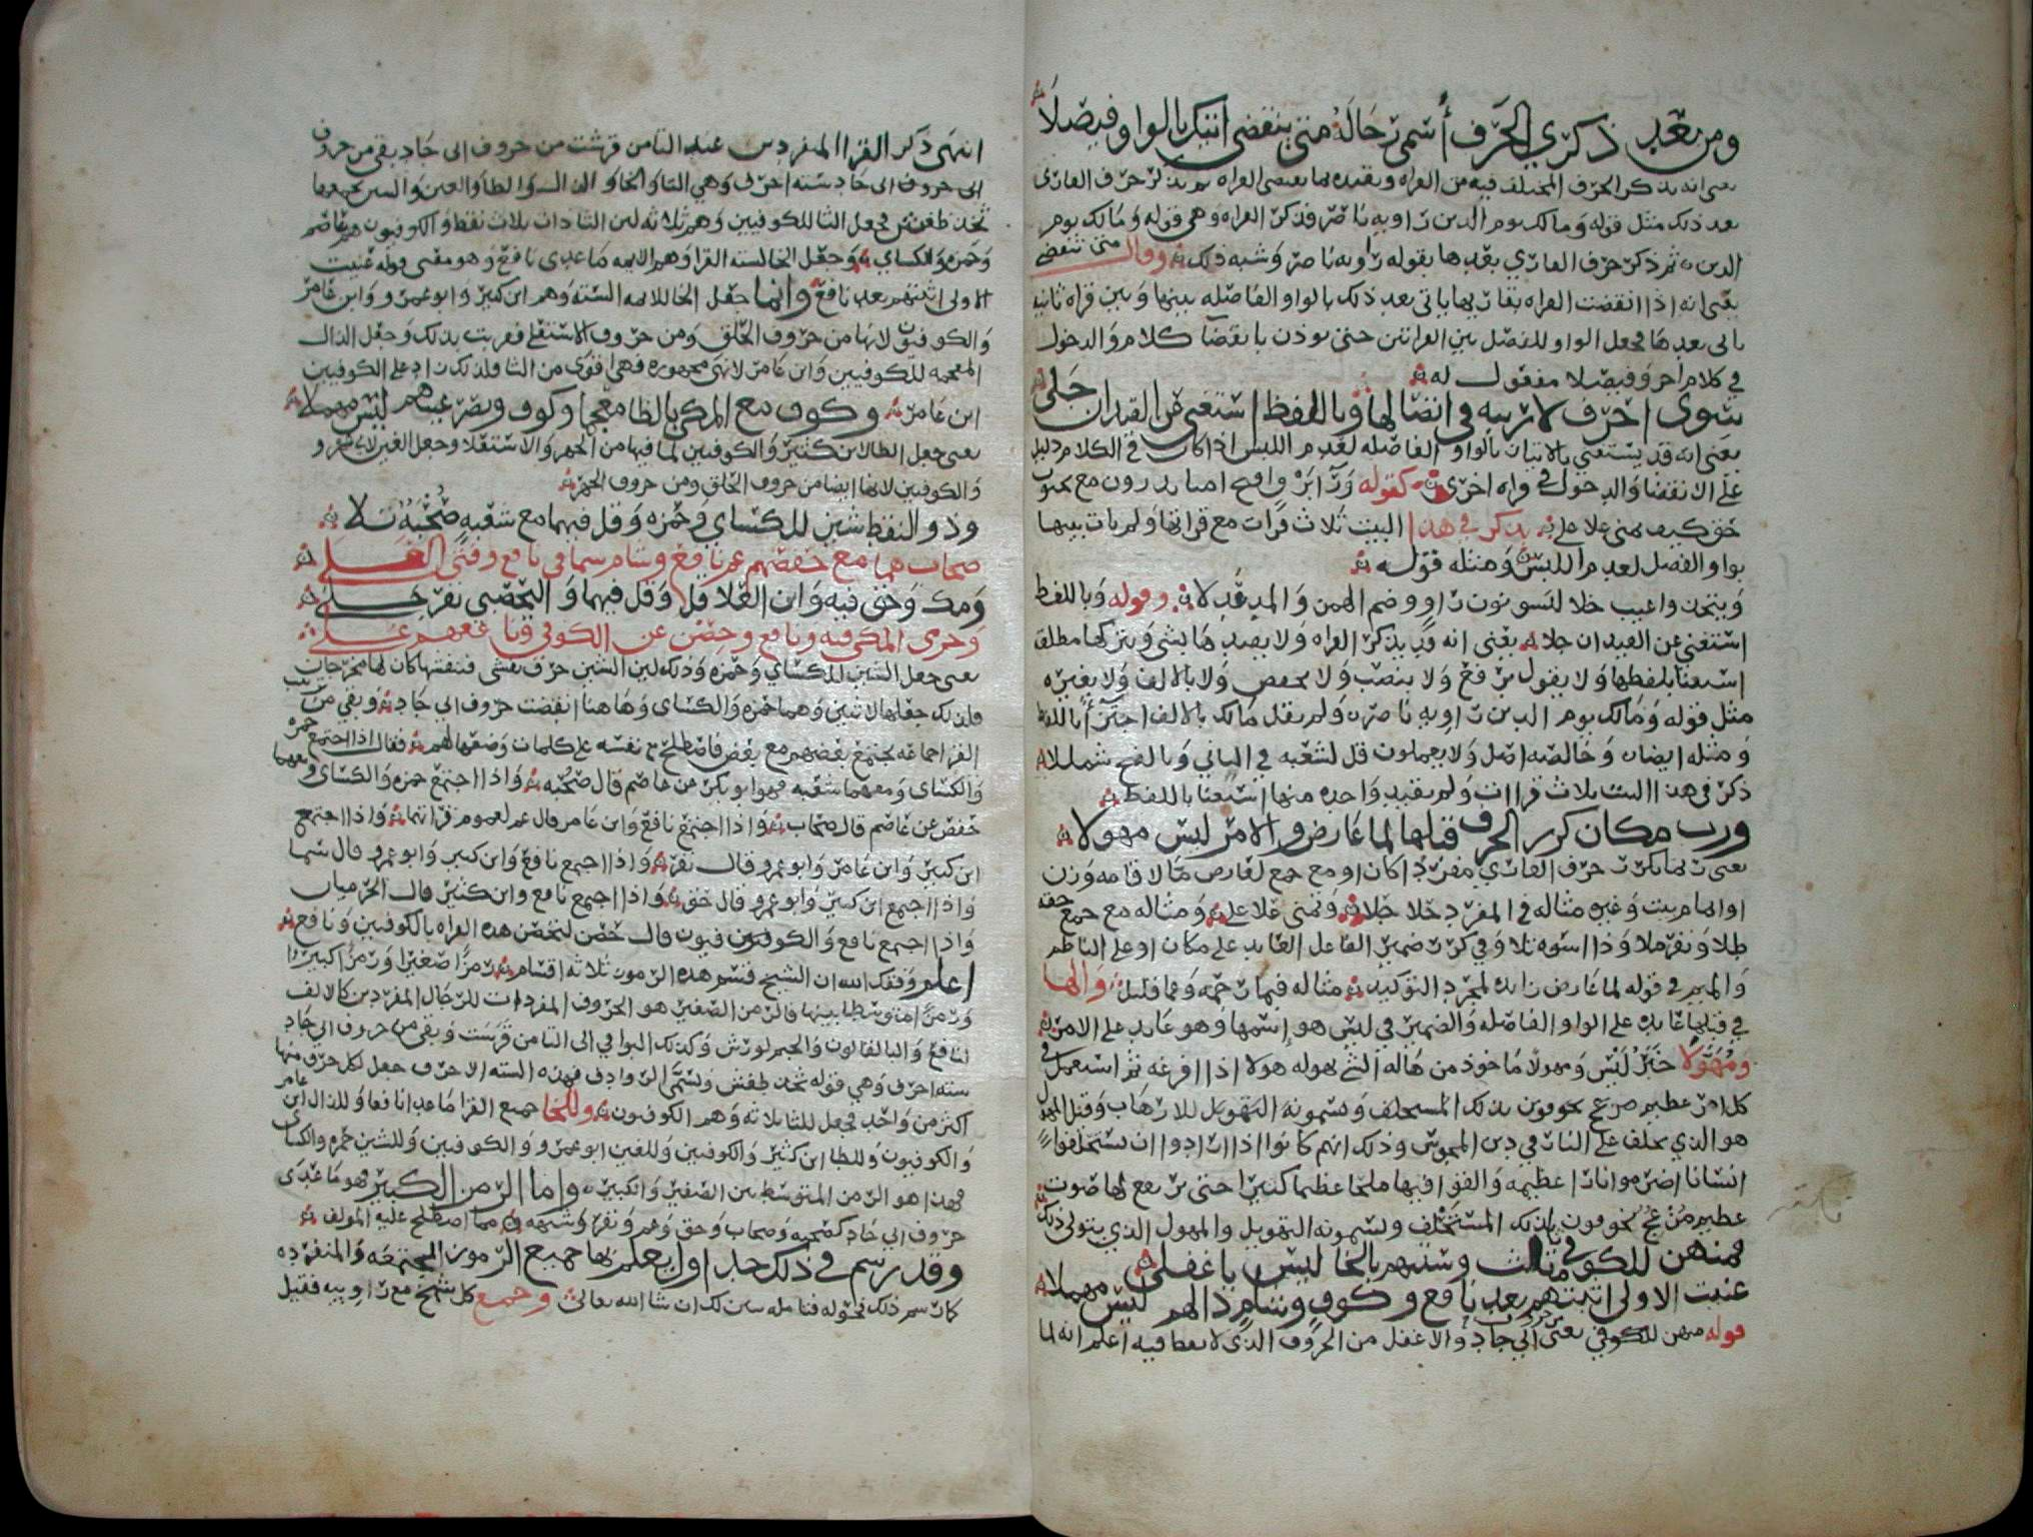 ومن بعد ذكري الحرف أسمي رجاله متى ينقضي اتيك بالواو فيصلا
يعني انه يذكر الحرف المختلف فيه من القراه ويقيده بما يقتضي القراه ثم يذكر حرف القاري
بعد ذلك مثل قوله ومالك يوم الدين راويه ناصر فذكر القراه وهي قوله ومالك يوم
الدين ثم ذكر حرف القاري بعدها بقوله راويه ناصر وشبه ذلك وقال متى تنقضي
يعني انه اذا انقضت القراه بقاريها ياتي بعد ذلك بالواو الفاصله بينها وبين قراه ثانيه
ياتي بعدها فجعل الواو للفصل بين القراتين حتى يوذن بانقضا كلام والدخول
في كلام اخر وفيصلا مفعول له
سوى احرف لا ريبه في اتصالها وباللفظ استغني عن القيد ان جلى
يعني انه قد يستغني بالاتيان بالواو الفاصله لعدم اللبس اذا كان في الكلام دليل
على الانقضا والدخول في قراه اخرى كقوله ورا برق افتح امنا يذرون مع يحبون
حق كيف يمنى علا على يذكر في هذا البيت ثلاث قرات مع قرائها ولم يات بينها
بواو الفصل لعدم اللبس ومثله قوله
ويتخذوا غيب حلا لنسو نون راو وضم الهمز والمد عدلا وقوله وباللفظ
استغني عن القيد ان جلا يعني انه قد يذكر القراه ولا يقيدها بشي ويتركها مطلق
استغنا بلفظها ولا يقول برفع ولا بنصب ولا بخفض ولا بالالف ولا بغيره
مثل قوله ومالك يوم الدين راويه ناصر ولم يقل مالك بالالف اجتزا باللفظ
ومثله ايضا وخالصه اصل ولا يعلمون قل لشعبه في الثاني وبالفتح شمللا
ذكر في هذا البيت ثلاث قرات ولم يقيد واحده منها استغنا باللفظ
ورب مكان كرر الحرف قبلها لما عارض والامر ليس مهولا
يعني ربما يكرر حرف القاري مفردا كان او مع جمع لعارض مثلا اقامه وزن
او اتمام بيت وغيره مثاله في المفرد حلا حلا ويمنى علا على ومثاله مع جمع حقه
طلا ونفر ملا وذا اسوه تلا وفي كرر ضمير الفاعل العايد على مكان او على الناظم
والميم في قوله لما عارض زايده لمجرد التوكيد مثاله فبما رحمه وعما قليل والها
في قبلها عايده على الواو الفاصله والضمير في ليس هو اسمها وهو عايد على الامر
ومهولا خبر ليس ومهولا ماخوذ من هاله الشي يهوله هولا اذا افرغه ثم استعمل في
كل امر عظيم مرعج يخوفون بذلك المستحلف ويسمونه التهويل للارهاب وقيل المهول
هو الذي يحلف على النار في دين المجوس وذلك انهم كانوا اذا ارادوا ان يستحلفوا
انسانا اضرموا نارا عظيمه والقوا فيها ملحا عظيما كثيرا حتى يرتفع لها صوت
عظيم مزعج يخوفون بذلك المستحلف ويسمونه التهويل والمهول الذي يتولى ذلك
فمنهن للكوفي ثا مثلث وستتهم بالخا ليس باغفلى
عنيت الاولى اثبتهم بعد نافع وكوف وشام ذالهم ليس مهملا
قوله منهن للكوفي يعني من حروف ابي جاد والاغفل من الحروف الذي لا نقطا فيه اعلم انه لما
انتهى ذكر القرا المنفردين عند التا من قرشت من حروف ابي جاد بقي من حروف
ابي حروف ابي جاد سته احرف وهي الثا والخا والذال والظا والغين والشين يجمعها
ثخذ ظغش فجعل الثا للكوفيين وهم ثلاثه لين الثا ذات ثلاث نقط والكوفيون هم عاصم
وحمزه والكساي وجعل الخا لسته القرا وهم الايمه ما عدى نافع وهو معنى قوله عنيت
الاولى اثبتهم بعد نافع وانما جعل الخا للايمه السته وهم ابن كثير وابو عمرو وابن عامر
والكوفيون لانها من حروف الحلق ومن حروف الاستعلا فقويت بذلك وجعل الذال
المعجمه للكوفيين وابن عامر لانها مجهوره فهي اقوى من الثا فلذلك زاد على الكوفيين
ابن عامر وكوف مع المكي بالظا معجما وكوف وبصر غينهم ليس مهملا
يعني جعل الظا لابن كثير والكوفيين لما فيها من الجهر والاستعلا وجعل الغين لابي عمرو
والكوفيين لانها ايضا من حروف الحلق ومن حروف الجهر
وذو النقط شين للكساي وحمزه وقل فيهما مع شعبه صحبه تلا
صحاب هما مع حفصهم عم نافع وشام سما في نافع وفتى العلى
ومك وحق فيه وابن العلا قل وقل فيهما واليحصبي نفر حلى
وحرمي المكي فيه ونافع وحصن عن الكوفي ونافعهم علا
يعني جعل الشين للكساي وحمزه وذلك لين الشين حرف تفشي فتفشيها كان لها مخرجان
فلذلك جعلها لاثنين وهما حمزه والكساي وهاهنا انقضت حروف ابي جاد وبقي من ترتيب
القرا جماعه يجتمع بعضهم مع بعض فاصطلح نفسه على كلمات وضعها لهم فقال اذا اجتمع حمزه
والكساي ومعهما شعبه فهو ابو بكر عن عاصم قال صحبه واذا اجتمع حمزه والكساي ومعهما
حفص عن عاصم قال صحاب واذا اجتمع نافع وابن عامر قال عم لعموم قرائتهما واذا اجتمع
ابن كثير وابن عامر وابو عمرو قال نفر واذا اجتمع نافع وابن كثير وابو عمرو قال سما
واذا اجتمع ابن كثير وابو عمرو قال حق واذا اجتمع نافع وابن كثير قال الحرميان
واذا اجتمع نافع والكوفيون قال حصن لتحصن هذه القراه بالكوفيين ونافع
اعلم وفقك الله ان الشيخ قسم هذه الرموز ثلاثه اقسام رمزا صغيرا ورمزا كبيرا
ورمزا متوسطا بينها فالرمز الصغير هو الحروف المفردات للرجال المفردين كالالف
لنافع والبا لقالون والجيم لورش وكذلك البواقي الى التا من قرشت وبقي من حروف ابي جاد
سته احرف وهي قوله ثخذ ظغش وتسمى الروادف فهذه السته الاحرف جعل لكل حرف منها
اكثر من واحد فجعل للثا ثلاثه وهم الكوفيون وللخا جميع القرا ما عدا نافعا وللذال ابن عامر
والكوفيون وللظا ابن كثير والكوفيين وللغين ابو عمرو والكوفيين وللشين حمزه والكساي
فهذا هو الرمز المتوسط بين الصغير والكبير واما الرمز الكبير فهو ما عدى
حروف ابي جاد كصحبه وصحاب وحق وعم ونفر وشبهه مما اصطلح عليه المولف
وقد رسم في ذلك جداول يعلم بها جميع الرموز المجتمعه والمنفرده
كان سم ذلك نحوله فتامله يبن لك ان شا الله تعالى وجمع كل شيخ مع راوييه فقيل